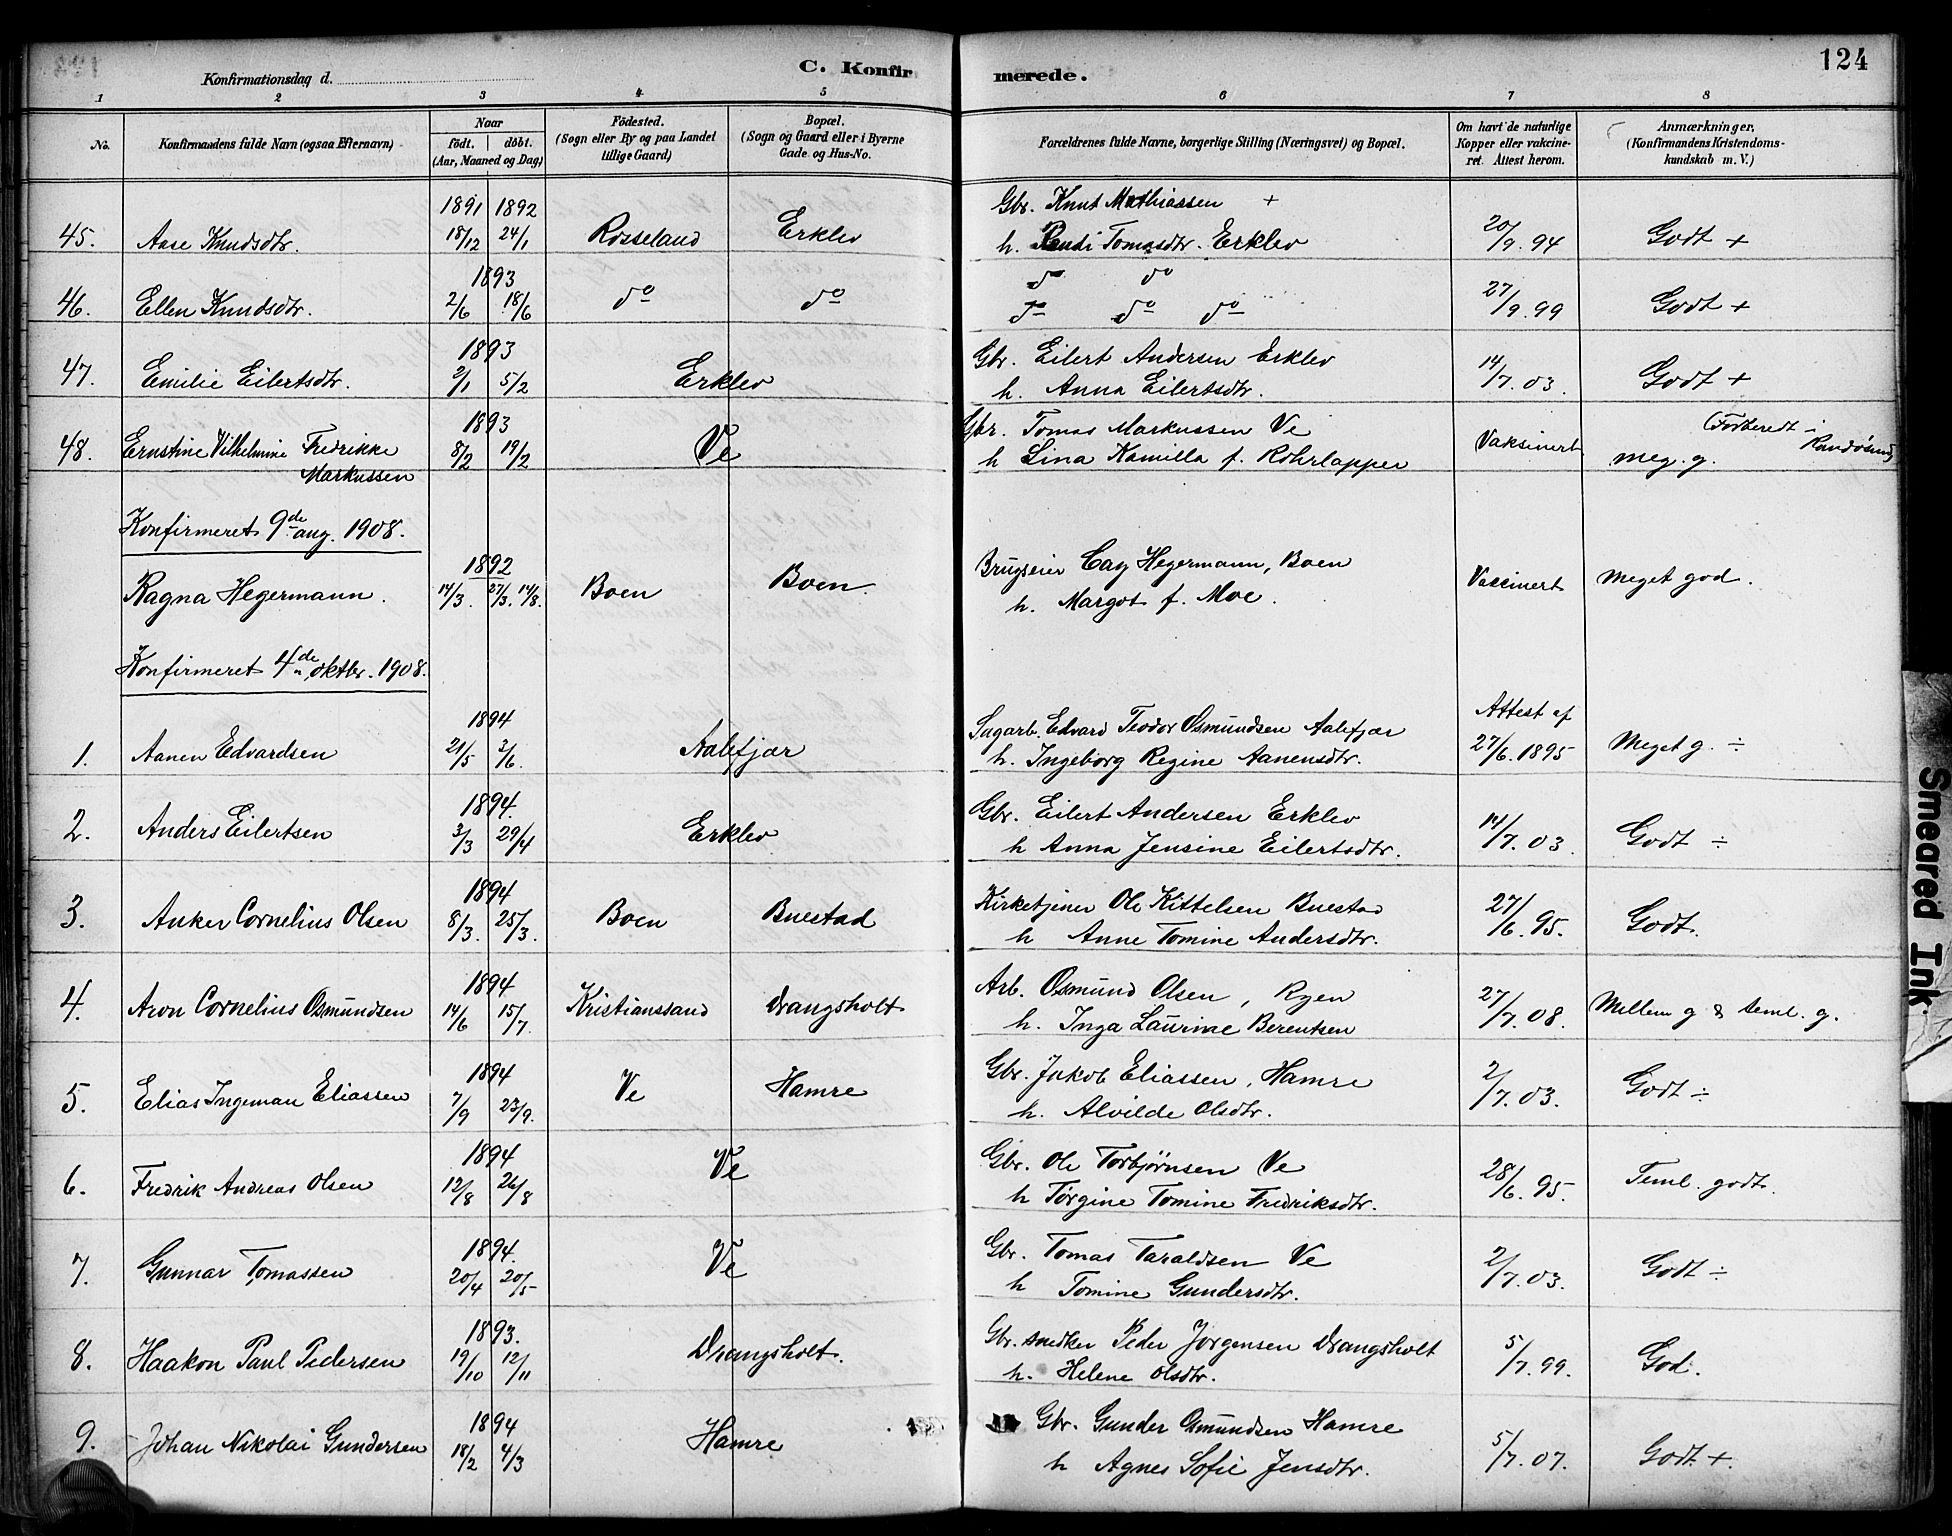 124
Konfirmationsdag d.
C. Konfirmerede.
1 2 3 4 5 6 7 8
No. Konfirmandens fulde Navn (ogsaa Efternavn) Naar født. døbt. (Aar, Maaned og Dag) Fødested. (Sogn eller By og paa Landet tillige Gaard) Bopæl. (Sogn og Gaard eller i Byerne Gade og Hus-No. Forældrenes fulde Navne, borgerlige Stilling (Næringsvei) og Bopæl. Om havt de naturlige Kopper eller vakcineret. Attest herom. Anmærkninger, (Konfirmandens Kristendomskundskab m. V.)
1891 1892 Gbr. Knut Mathiassen +
45. Aase Knudsdtr. 18/12 24/1 Rosseland Erklev h. Randi Tomasdtr. Erklev 20/9. 94 Godt +
1893 do do
46. Ellen Knudsdtr. 2/6 18/6 do do do do do 27/9. 99 Godt +
1893 Gbr. Eilert Andersen Erklev
47. Emilie Eilertsdtr. 2/1 5/2 Erklev h. Anna Eilertsdtr. 14/7. 03. Godt +
1893 Gbr. Tomas Markussen Ve (Forberedt i Randøsund)
48. Ernstine Vilhelmine Fredrikke 8/2 19/2 Ve h Lina Kamilla f. Rohrlapper Vaksinert meg. g.
Markussen
Konfirmeret 9de aug. 1908.
1892 Brugseier Cay Hegermann, Boen
Ragna Hegermann. 14/3. 27/3. 14/8. Boen Boen. h. Margot f. Moe. Vaccinert Meget god.
Konfirmeret 4de oktbr. 1908.
1894 Sagarb. Edvard Teodor Osmundsen Aalefjær Attest af
1. Aanen Edvardsen 21/5 3/6. Aalefjær h. Ingeborg Regine Aanensdtr. 27/6. 1895 Meget g. ÷
1894. Gbr. Eilert Andersen Erklev
2. Anders Eilertsen 3/3 29/4 Erklev h Anna Jensine Eilertsdtr. 14/7. 03. Godt ÷
1894 Kirketjener Ole Kittelsen Buestad
3. Anker Cornelius Olsen 8/3. 25/3. Boen Buestad h Anne Tomine Andersdtr. 27/6. 95. Godt.
1894 Arb. Osmund Olsen, Ryen
4. Aron Cornelius Osmundsen 14/6 15/7. Kristianssand Drangsholt h. Inga Laurine Berentsen 27/7. 08. Mellem g & teml. g.
1894 Gbr. Jakob Eliassen, Hamre
5. Elias Ingeman Eliassen 7/9 23/9. Ve Hamre h. Alvilde Olsdtr. 2/7. 03. Godt ÷
1894 Gbr. Ole Torbjørnsen Ve
6. Fredrik Andreas Olsen 12/8 26/8 Ve h Torgine Tomine Fredriksdtr. 28/6. 95. Teml. godt.
1894. Gbr. Tomas Taraldsen Ve
7. Gunnar Tomassen 20/4 20/5 Ve h Tomine Gundersdtr. 2/7. 03. Godt ÷
1893. Gbr. snedker Peder Jørgensen Drangsholt
8. Haakon Paul Pedersen 19/10 12/11 Drangsholt. h. Helene Olsdtr. 5/7. 99. God.
1894 Gbr. Gunder Osmundsen Hamre
9. Johan Nikolai Gundersen 18/2 4/3 Hamre h Agnes Sofie Jensdtr. 5/7. 07. Godt +.
Smeared Ink.